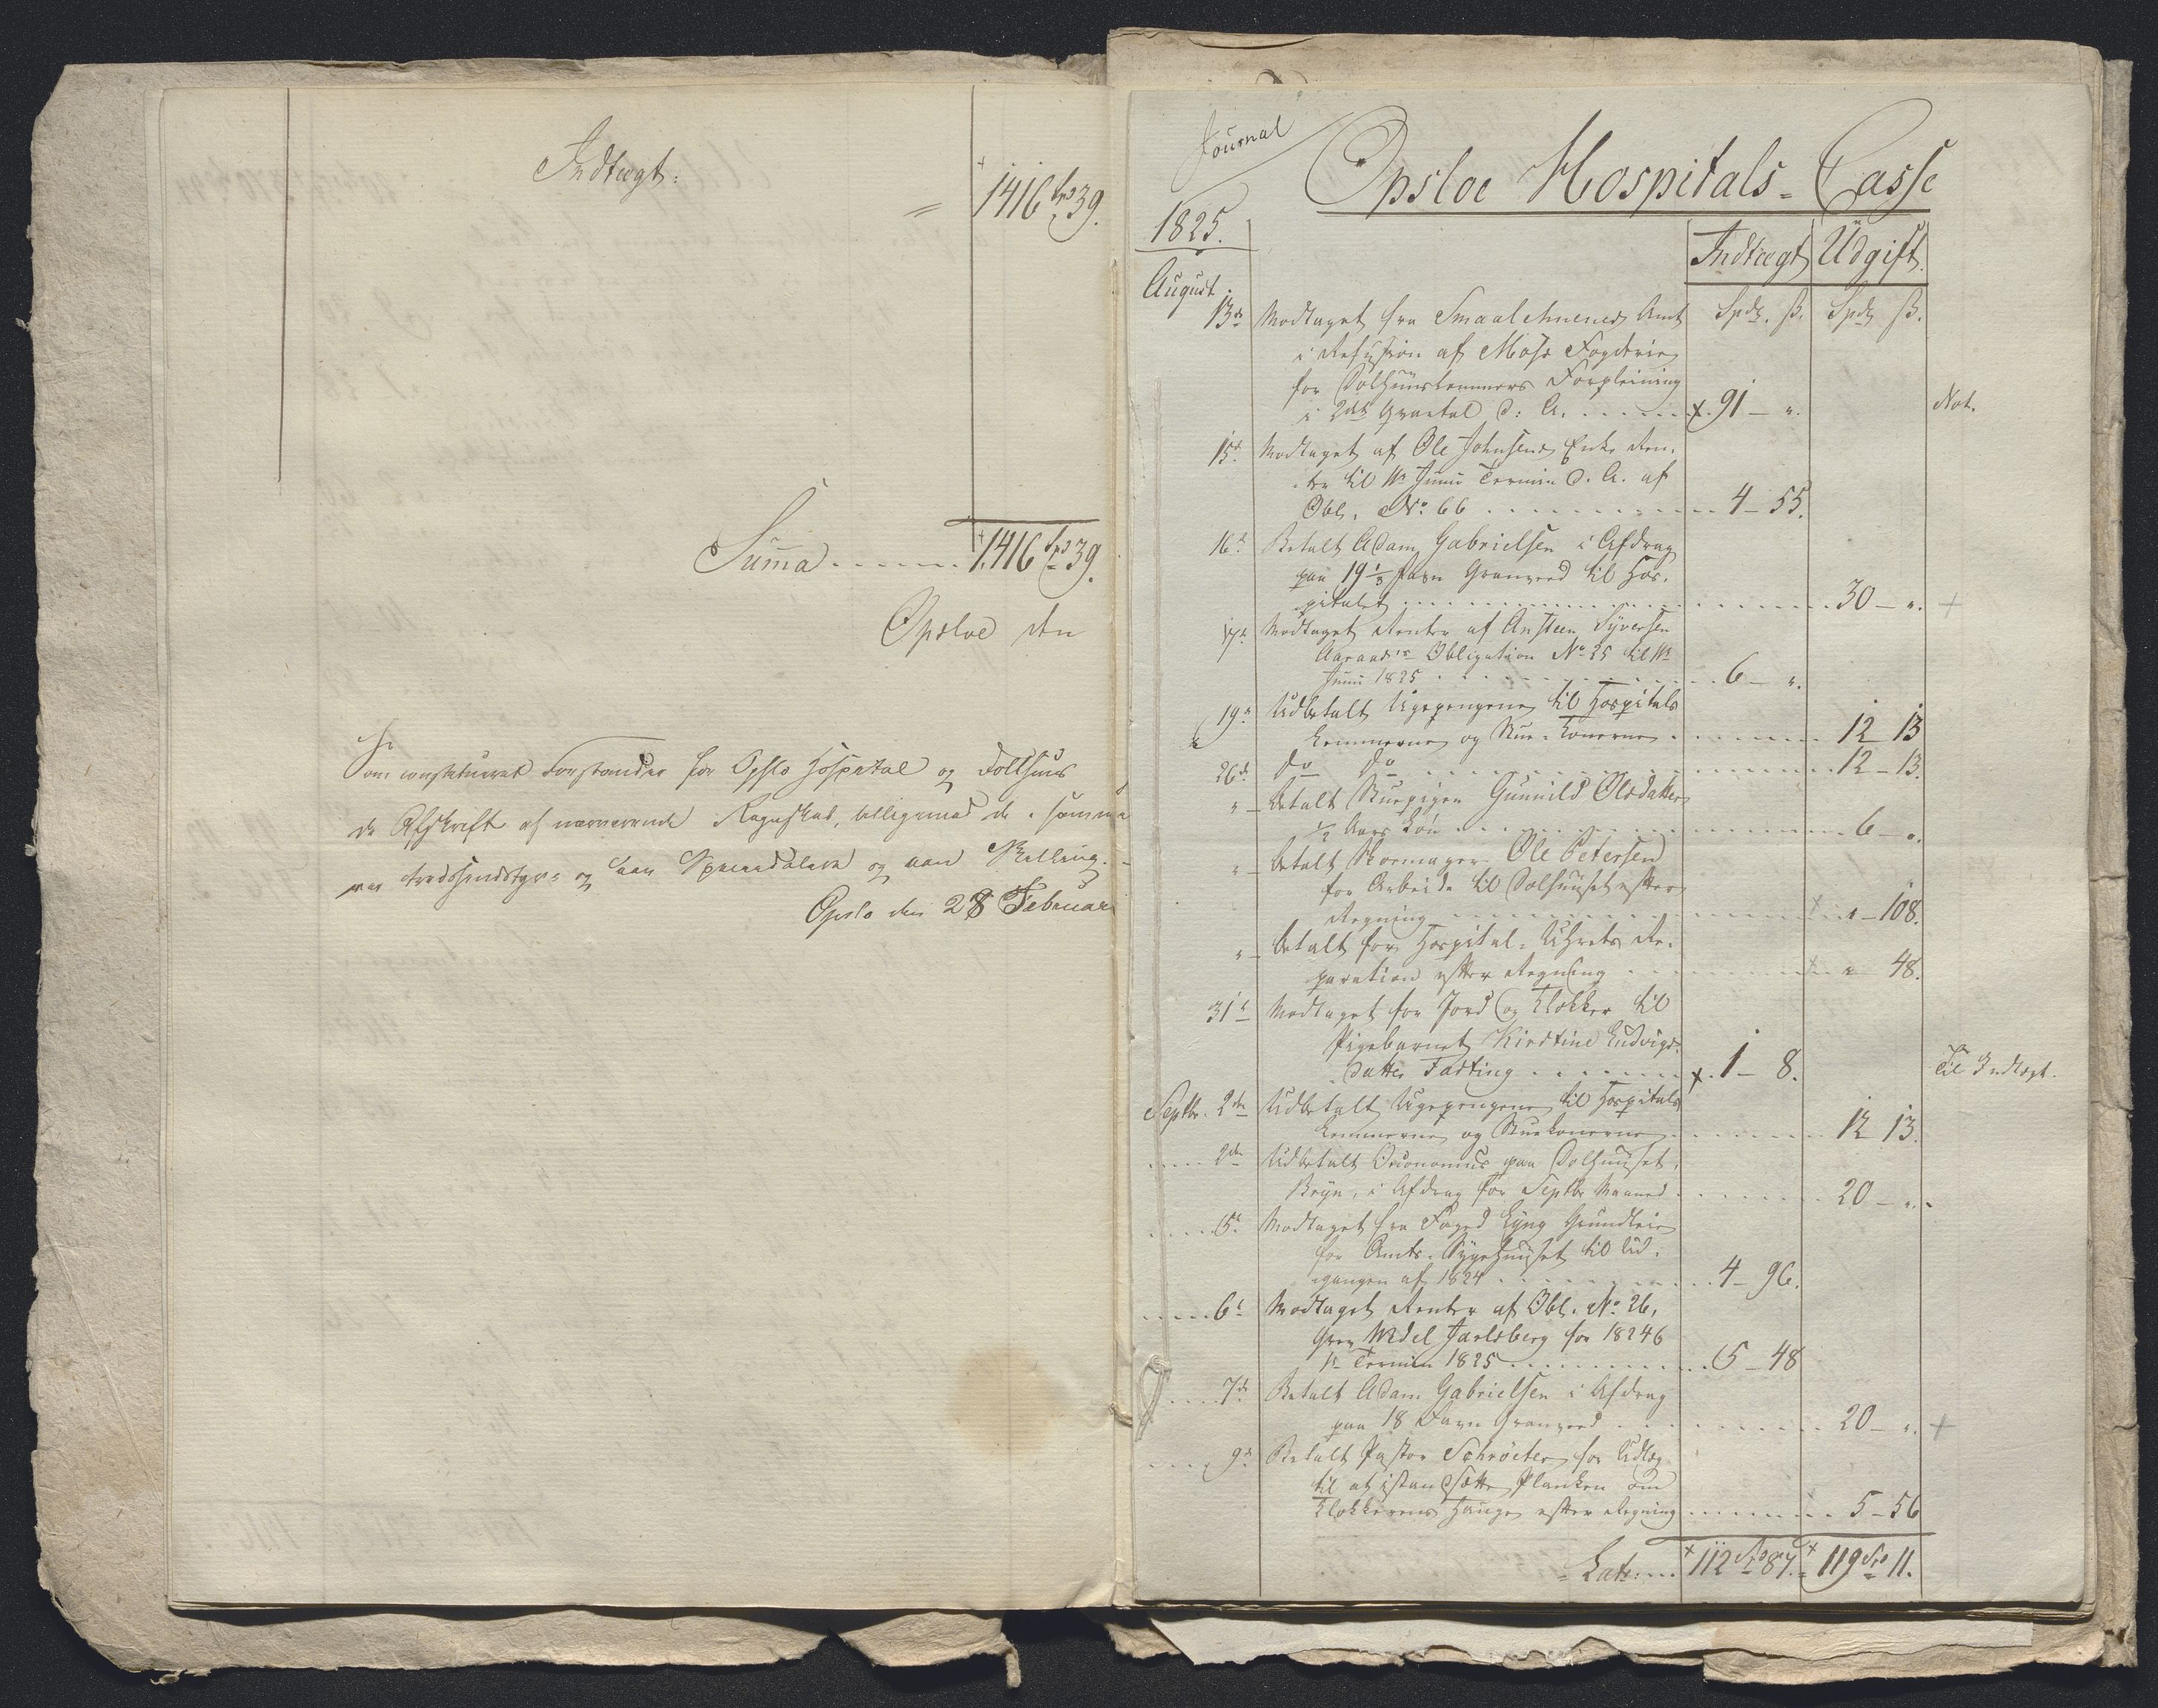 Indtægt:
1416 Spd 39.
Suma . . . . . . 1416 Spd 39.
Opsloe den
Som constitueret Forstander for Opslo Hospital og Dollhuus
de Afskrift af nærværende Regnskab, tilligemed de i samme
og een Skilling.
Opslo den 28 Februar
Journal
Opsloe Hospitals-Casse
1825.
Indtægt Udgift
August
Spd. ß. Spd ß.
13de Modtaget fra Smaalehnenes Amt
i Refusion af Moss Fogderie
for Dolhuuslemmers Forpleining
i 2det Qvartal d: A. . . . . . x. 91 – ".
Not.
15de Modtaget af Ole Johnsens Enke Ren-
ter til 11te Juni Termin d. A. af
Obl. No. 66 . . . . . . . . . . 4 – 55.
16de Betalt Adam Gabrielsen i Afdrag
paa 19 1/3 Favn Granved til Hos-
pitalet . . . . . . . . . . 30 – ". +
17de Modtaget Renter af Ansteen Syversen
Aaraas's Obligation No 25 til 11te
Juni 1825 . . . . . . . . 6 – ".
19de Udbetalt Ugepengene til Hospitals
Lemmerne og Stue-Konerne . . . . . . 12 13
26de do do . . . . . . . . 12 – 13.
" – Betalt Stuepigen Gunnild Olsdatter
1/2 Aars Løn . . . . . . . . 6 – ".
" – betalt Skoemager Ole Petersen
for Arbeide til Dolhuuset efter
Regning . . . . . . . . " – 108.
" – betalt for Hospital-Uhrets Re-
paration efter Regning . . . . . . " 48.
31te Modtaget for Jord og Klokker til
Pigebarnet Kirstine Ludvigs-
datter Fasting . . . . . . . x. 1 – 8.
Til Indtægt.
Septbr. 2den Udbetalt Ugepengene til Hospitals
Lemmerne og Stuekonerne . . . . . . 12 13.
. . . . 2den Udbetalt Oeconomus paa Dolhuuset,
Bryn, i Afdrag for Septbr Maaned . . . . . . 20 – ".
. . . . 5te Modtaget fra Foged Lyng Grundleie
for Amts-Sygehuuset til Ud-
gangen af 1824 . . . . . . . . 4 – 96.
. . . . 6te Modtaget Renter af Obl. No. 26,
Grev Wedel Jarlsberg for 1824 6
11te Termin 1825 . . . . . . . . 5 – 48
. . . . 7de Betalt Adam Gabrielsen i Afdrag
paa 18 Favn Granved . . . . . . 20 – ". +
. . . . 9de Betalt Pastor Schröeter for Udlæg
til at istandsætte Planken om
Klokkerens Hauge efter Regning . . . . . . 5 – 56
Lats: . . . x 112 Spd 87. x 119 Spd 11.